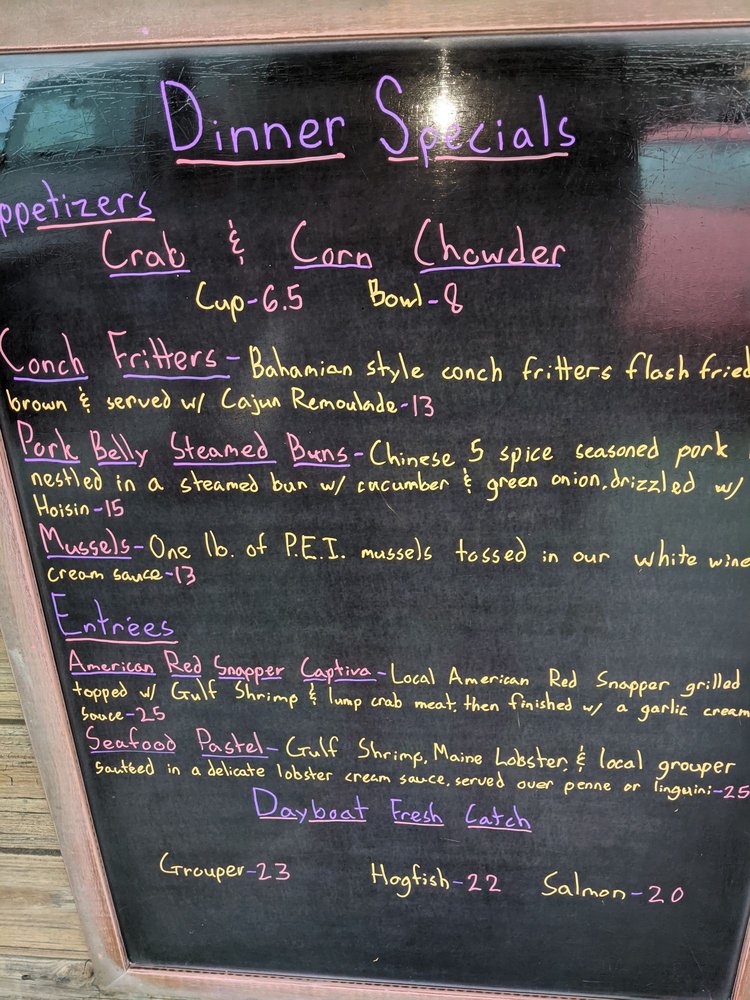 Dinner Specials
ppetizers
Crab & Corn Chowder
Cup-6.5 Bowl-8
Conch Fritters- Bahamian style conch fritters flash fried
brown & served w/ Cajun Remoulade-13
Pork Belly Steamed Buns- Chinese 5 spice seasoned pork
nestled in a steamed bun w/ cucumber & green onion, drizzled w/
Hoisin-15
Mussels- One lb. of P.E.I. mussels tossed in our white wine
cream sauce-13
Entrées
American Red Snapper Captiva- Local American Red Snapper grilled
topped w/ Gulf Shrimp & lump crab meat, then finished w/ a garlic cream
sauce-25
Seafood Pastel- Gulf Shrimp, Maine Lobster, & local grouper
sautéed in a delicate lobster cream sauce, served over penne or linguini-25
Dayboat Fresh Catch
Grouper-23 Hogfish-22 Salmon-20